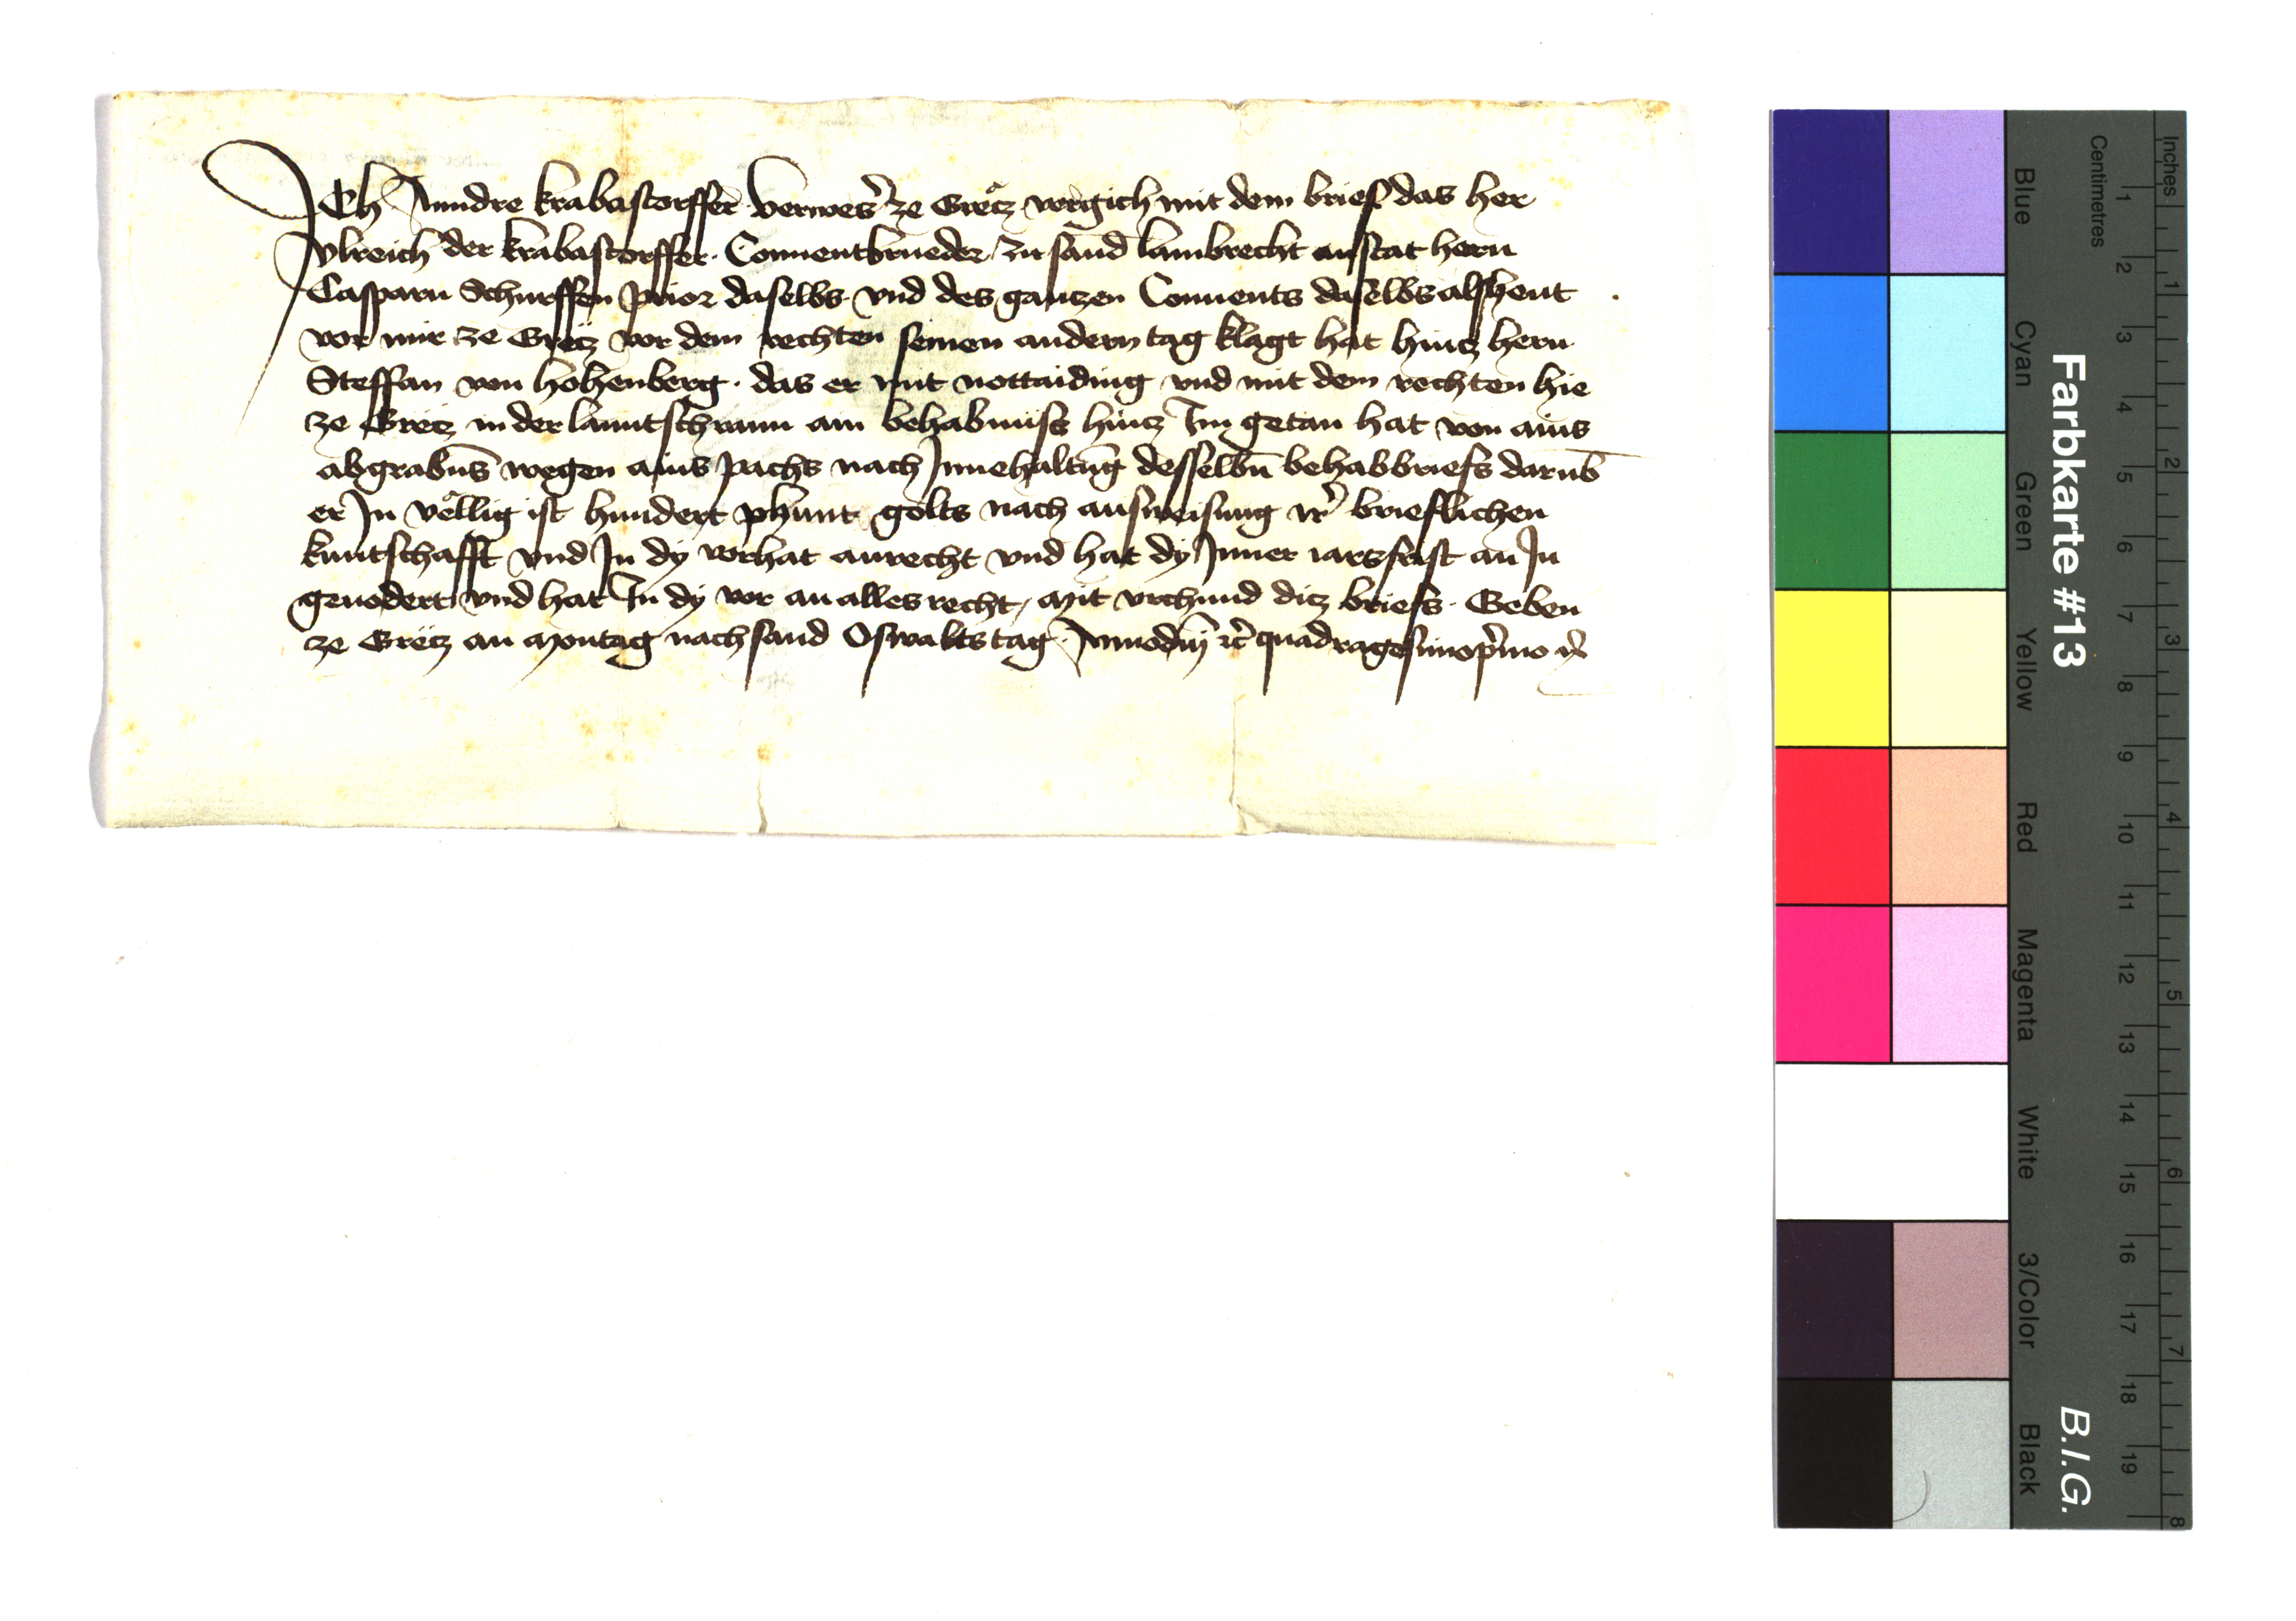 Ich Anndre krabastorffer verwes' ze Gretz vergich mit dem brief das her
vlreich der krabastorffer Conuentbrueder zu sand lambrecht anstat hern
Casparn Schurffen prior daselbs vnd des gantzen Conuents daselbs alsheut
vor mir ze Gretz vor dem rechten seinen andern tag klagt hat hintz hern
Steffan von hohenberg · das er mit nottaiding vnd mit dem rechten hie
ze Gretz in der lanntschrann ain behabnuss hintz Im getan hat von ains
abgrabns wegen ains pachs nach Innehaltung desselbn behabbriefs darub
er In vellig ist hundert phunt golts nach ausweisung ir' brieflichen
kuntschafft vnd In dy vorhat anrecht vnd hat dy Inner iarsfrist an In
geuodert vnd hat In dy vor an alles recht, Mit vrchund ditz briefs · Geben
ze Gretz an Montag nach sand Oswalts tag Annodm̄ rc̄ quadragesimop'mo
Farbkarte #13
B.I.G.
Blue Cyan Green Yellow Red Magenta White 3/Color Black
Centimetres 1 2 3 4 5 6 7 8 9 10 11 12 13 14 15 16 17 18 19
Inches 1 2 3 4 5 6 7 8